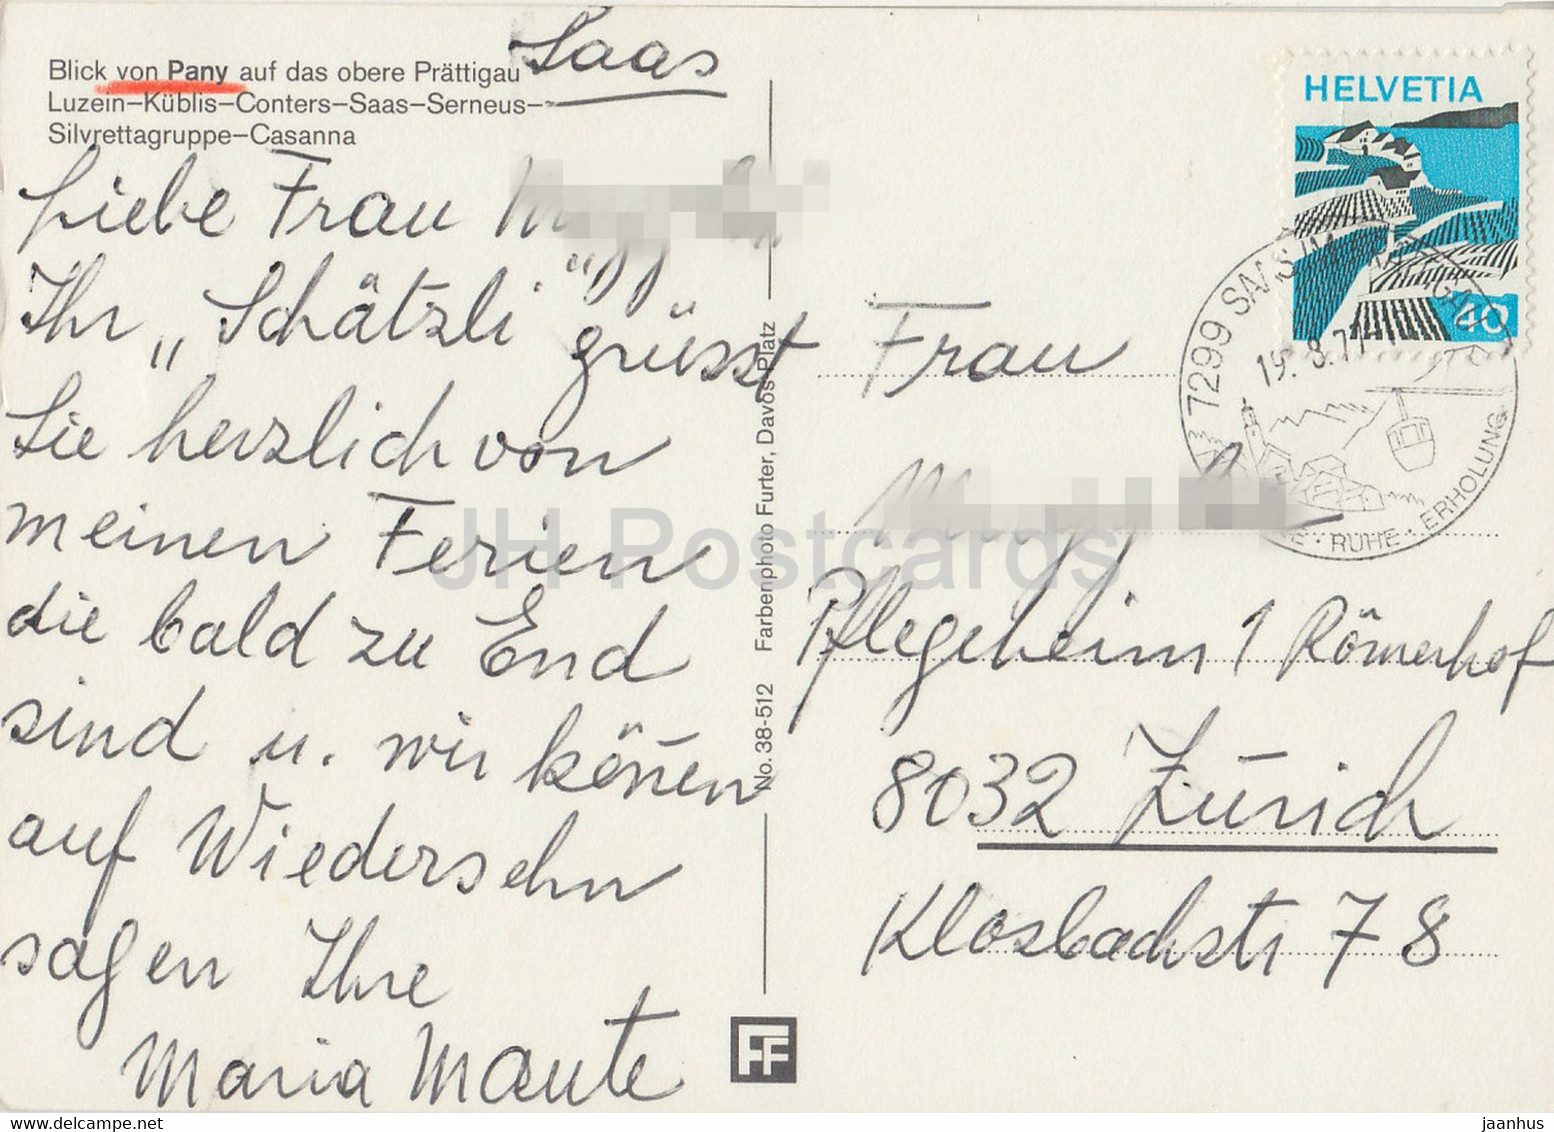 Saas
Blick von Pany auf das obere Prättigau
Luzein–Küblis–Conters–Saas–Serneus–
Silvrettagruppe–Casanna
Liebe Frau
Ihr „Schätzli“ grüsst
Sie herzlich von
meinen Ferien
die bald zu End
sind u. wir können
auf Wiedersehn
sagen Ihre
Maria Maute
No. 38-512 Farbenphoto Furter, Davos-Platz
FF
HELVETIA
40
7299 SAAS IM
19.8.77
RUHE · ERHOLUNG
Frau
Pflegeheim 1 Römerhof
8032 Zürich
Klosbachstr 78
JH Postcards
jaanhus